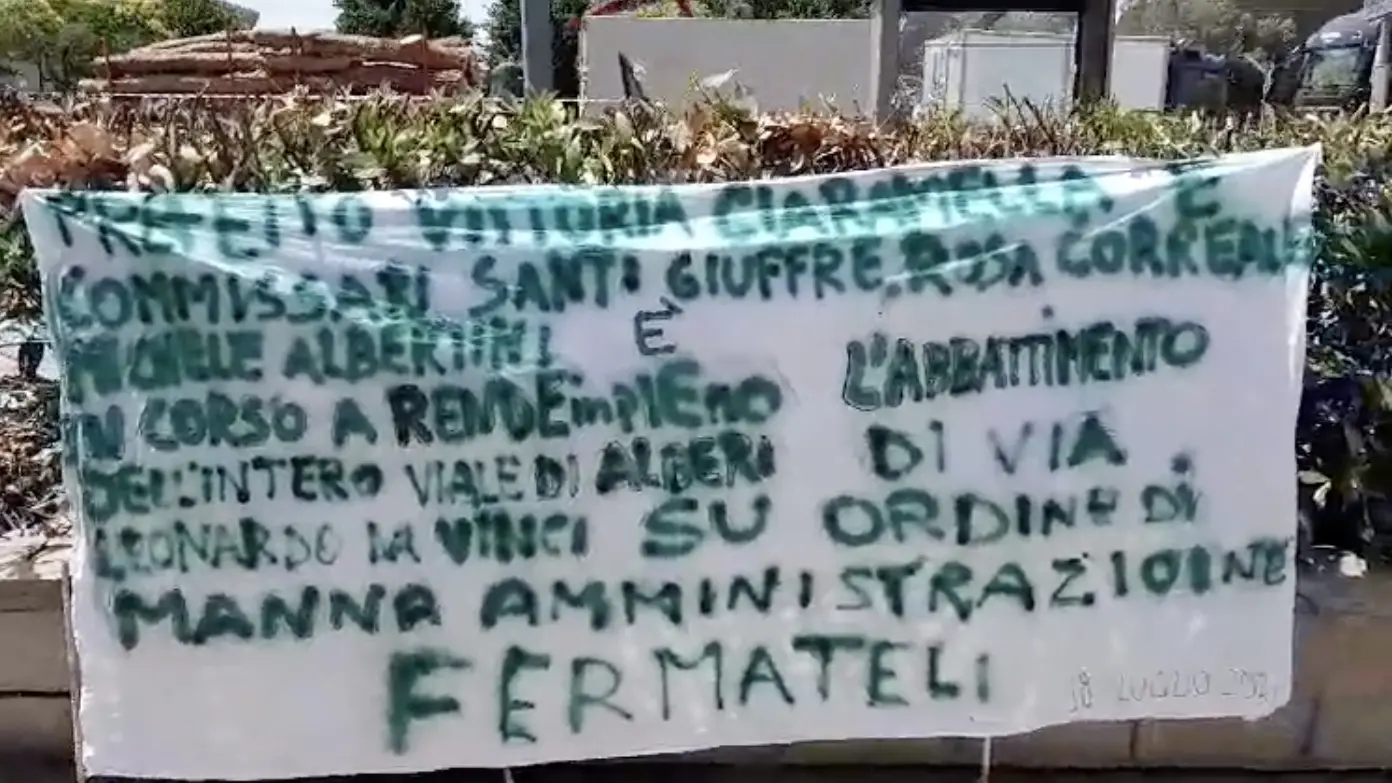 PREFETTO VITTORIA CIARAMELLA E
COMMISSARI SANTI GIUFFRE, ROSA CORREALE
MICHELE ALBERTINI È
IN CORSO A RENDE ImPIEnO L'ABBATTIMENTO
DELL'INTERO VIALE DI ALBERI DI VIA
LEONARDO DA VINCI SU ORDINE DI
MANNA AMMINISTRAZIOINE
FERMATELI
18 LUGLIO